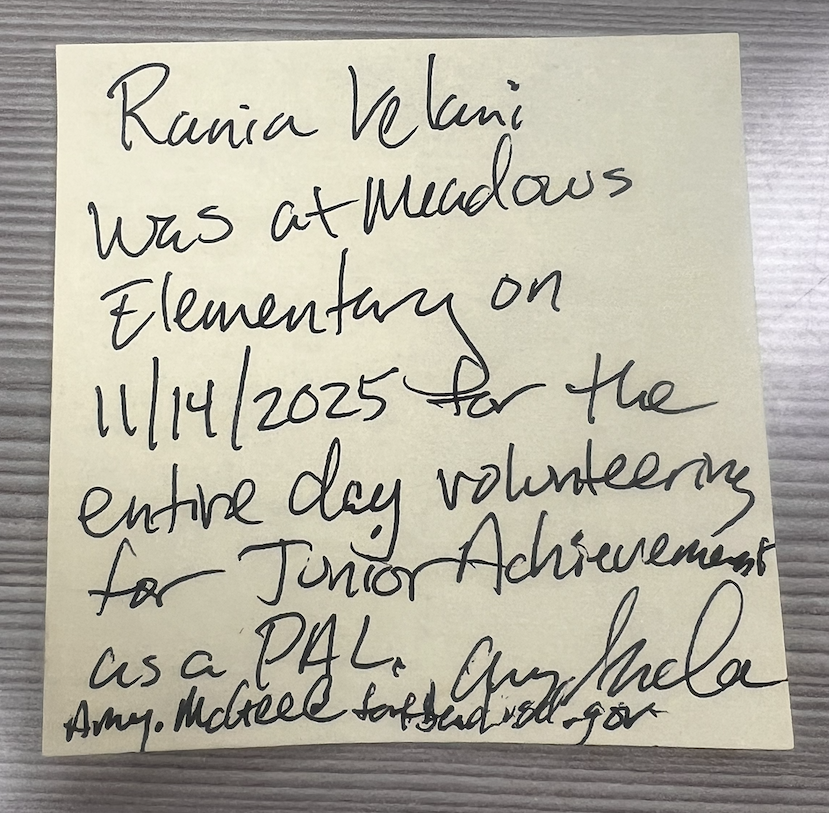 Rania Velani
was at Meadows
Elementary on
11/14/2025 for the
entire day volunteering
for Junior Achievement
as a PAL. Amy
Amy.